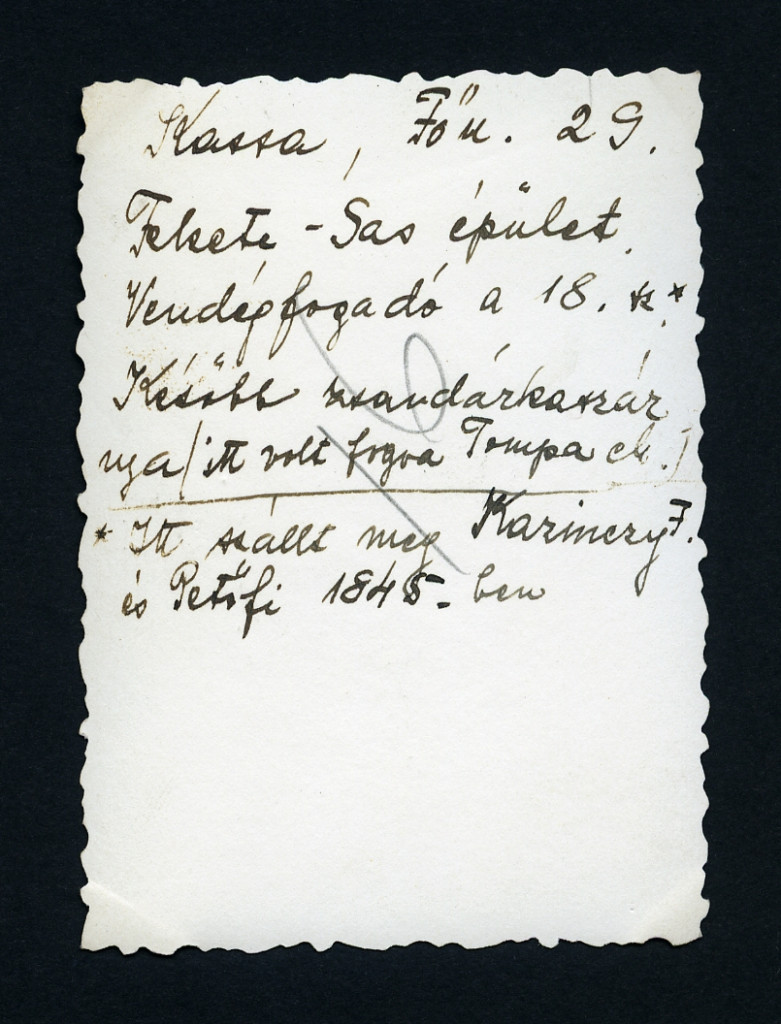 Kassa, Fő u. 29.
Fekete-Sas épület.
Vendégfogadó a 18. sz.*
Később zsandárkaszár
nya (itt volt fogva Tompa is.)
* Itt szállt meg Kazinczy F.
és Petőfi 1845.-ben